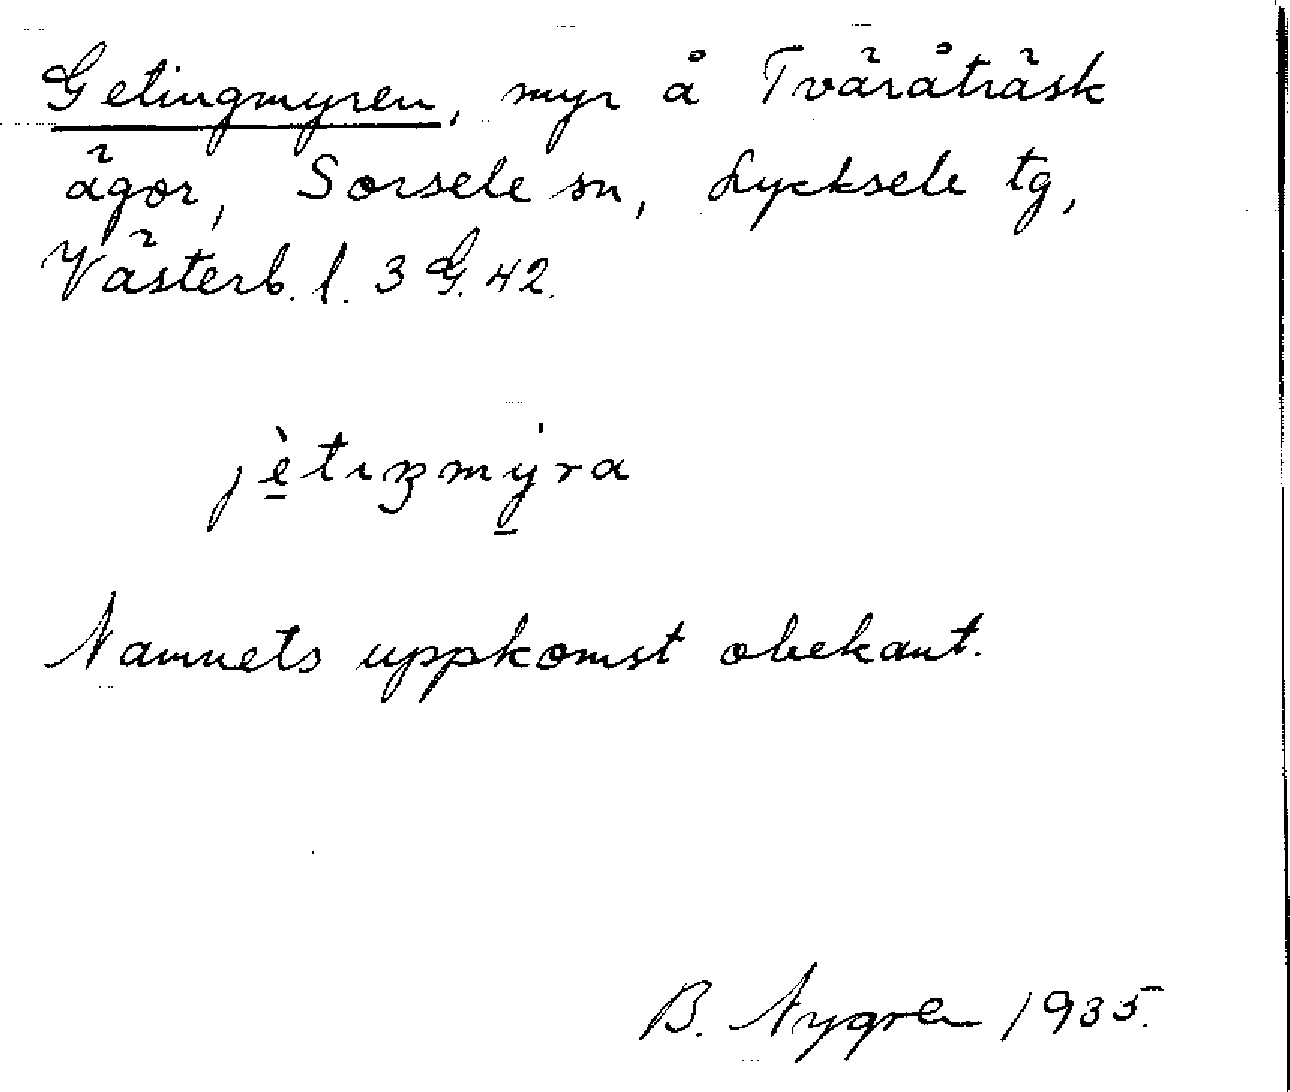 Getingmyren, myr å Tväråträsk
ägor, Sorsele sn, Lycksele tg,
Västerb. l. 3 G. 42.
jè̱tɩŋmý̱ra
Namnets uppkomst obekant.
B. Nygren 1935.